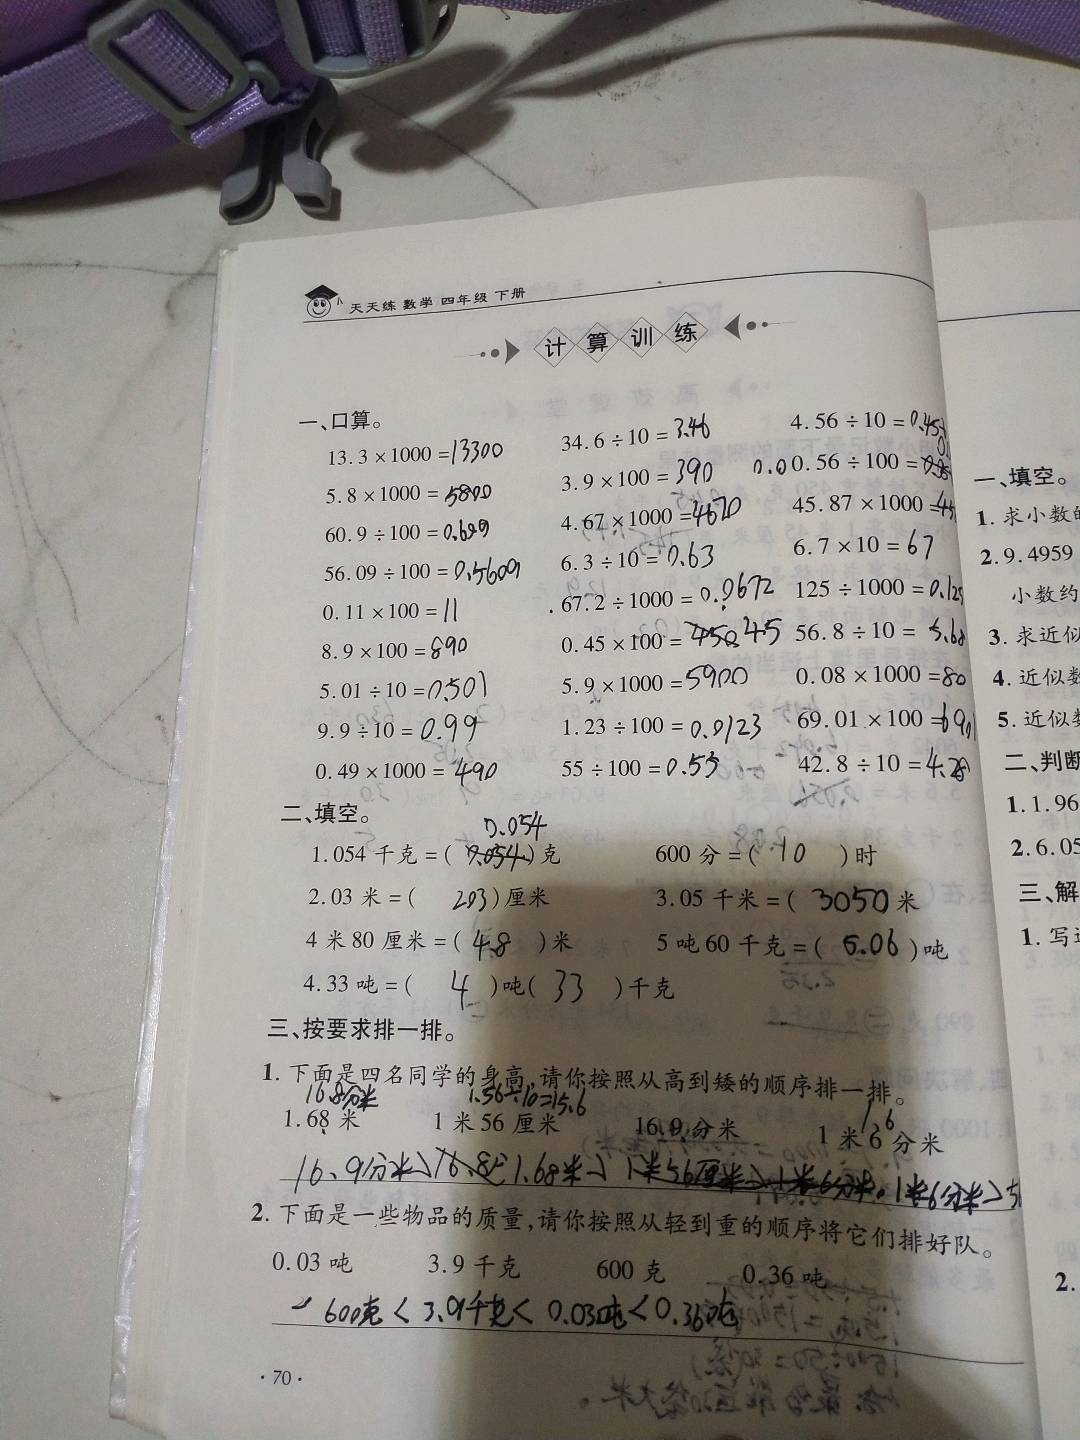 天天练 数学 四年级 下册
计算训练
一、口算。
13.3×1000=13300 34.6÷10=3.46 4.56÷10=0.45
5.8×1000=5800 3.9×100=390 0.56÷100=
60.9÷100=0.609 4.67×1000=4670 45.87×1000=45
56.09÷100=0.5609 6.3÷10=0.63 6.7×10=67
0.11×100=11 67.2÷1000=0.0672 125÷1000=0.125
8.9×100=890 0.45×100=45 56.8÷10=5.68
5.01÷10=0.501 5.9×1000=5900 0.08×1000=80
9.9÷10=0.99 1.23÷100=0.0123 69.01×100=6901
0.49×1000=490 55÷100=0.55 42.8÷10=4.28
二、填空。
0.054
1.054千克=( )克 600分=(10)时
2.03米=(203)厘米 3.05千米=(3050米
4米80厘米=(4.8)米 5吨60千克=(5.06)吨
4.33吨=(4)吨(33)千克
三、按要求排一排。
1.下面是四名同学的身高,请你按照从高到矮的顺序排一排。
16.8分米 1.56÷10=15.6 1.6
1.68米 1米56厘米 16.9分米 1米6分米
16.9分米>1.68米> 1米6分米>
2.下面是一些物品的质量,请你按照从轻到重的顺序将它们排好队。
0.03吨 3.9千克 600克 0.36吨
600克<3.9千克<0.03吨<0.36吨
·70·
一、填空。
1.求小数的
2.9.4959
小数约
3.求近似
4.近似数
5.近似
二、判断
1.1.96
2.6.05
三、解
1.写
2.